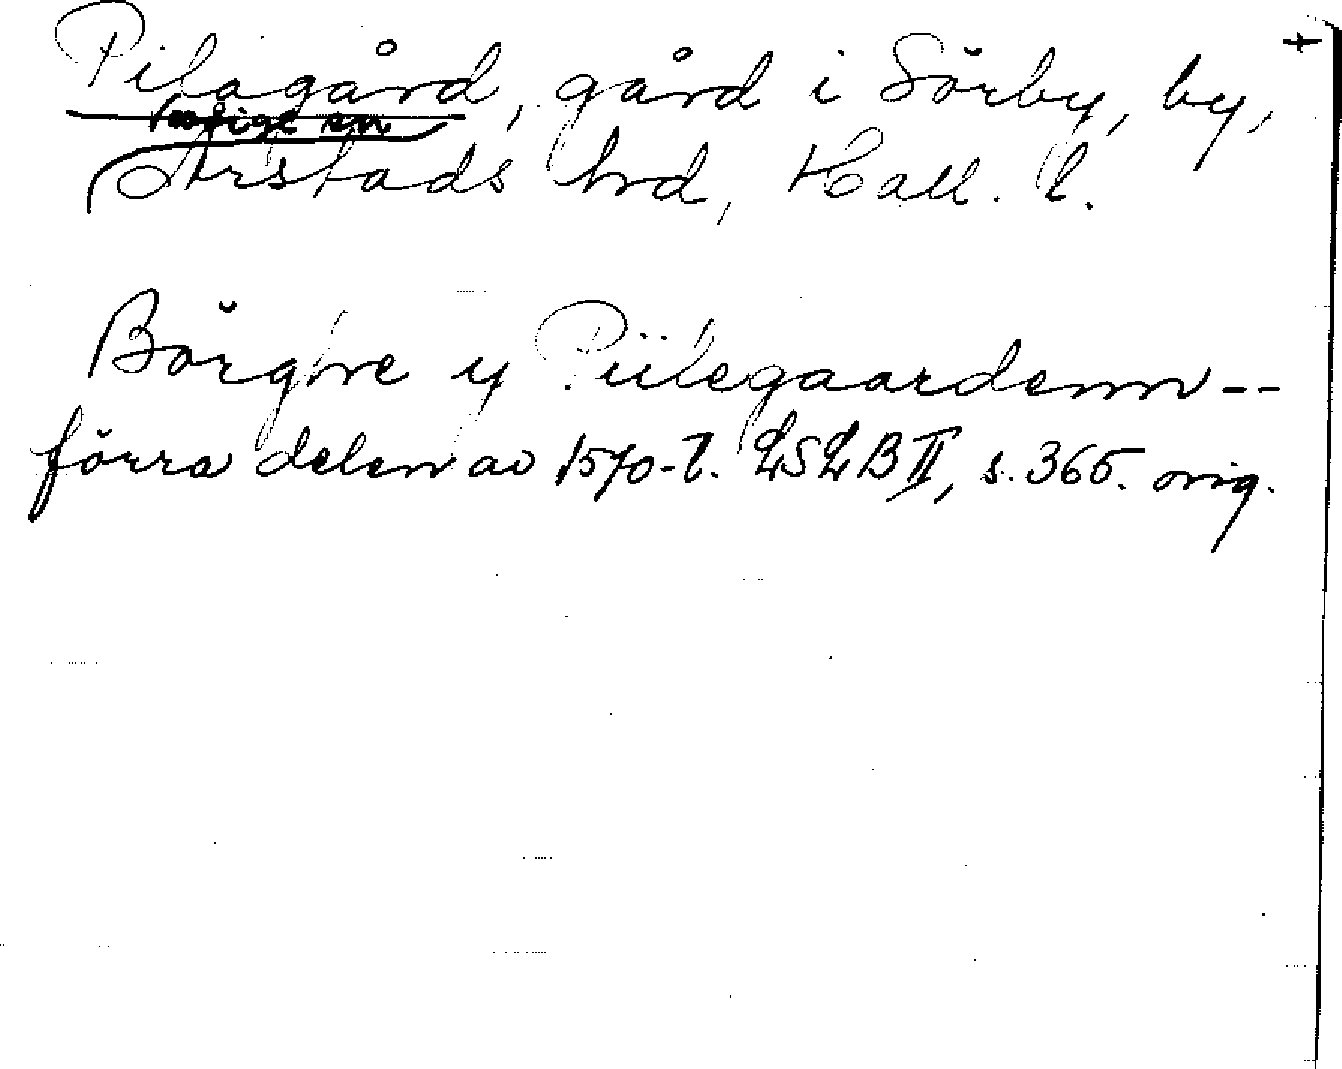 Pilagård, gård i Sörby, by,
Slöinge sn
Årstads hrd, Hall. l.
Börghre y Piilegaardenn --
förra delen av 1570-t. LSLB II, s. 365. orig.